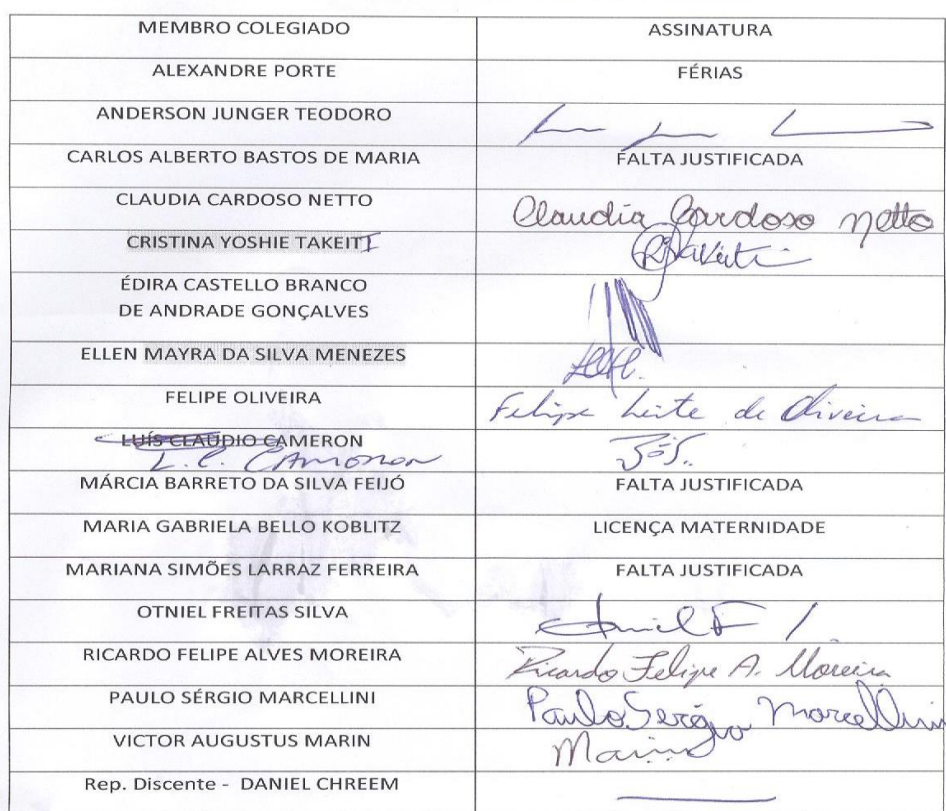 MEMBRO COLEGIADO ASSINATURA
ALEXANDRE PORTE FÉRIAS
ANDERSON JUNGER TEODORO
CARLOS ALBERTO BASTOS DE MARIA FALTA JUSTIFICADA
CLAUDIA CARDOSO NETTO Claudia Cardoso Netto
CRISTINA YOSHIE TAKEITI Takeiti
ÉDIRA CASTELLO BRANCO
DE ANDRADE GONÇALVES
ELLEN MAYRA DA SILVA MENEZES
FELIPE OLIVEIRA Felipe Leite de Oliveira
LUÍS CLAUDIO CAMERON
L. C. CAMERON
MÁRCIA BARRETO DA SILVA FEIJÓ FALTA JUSTIFICADA
MARIA GABRIELA BELLO KOBLITZ LICENÇA MATERNIDADE
MARIANA SIMÕES LARRAZ FERREIRA FALTA JUSTIFICADA
OTNIEL FREITAS SILVA
RICARDO FELIPE ALVES MOREIRA Ricardo Felipe A. Moreira
PAULO SÉRGIO MARCELLINI Paulo Sérgio Marcellini
VICTOR AUGUSTUS MARIN Marin
Rep. Discente - DANIEL CHREEM